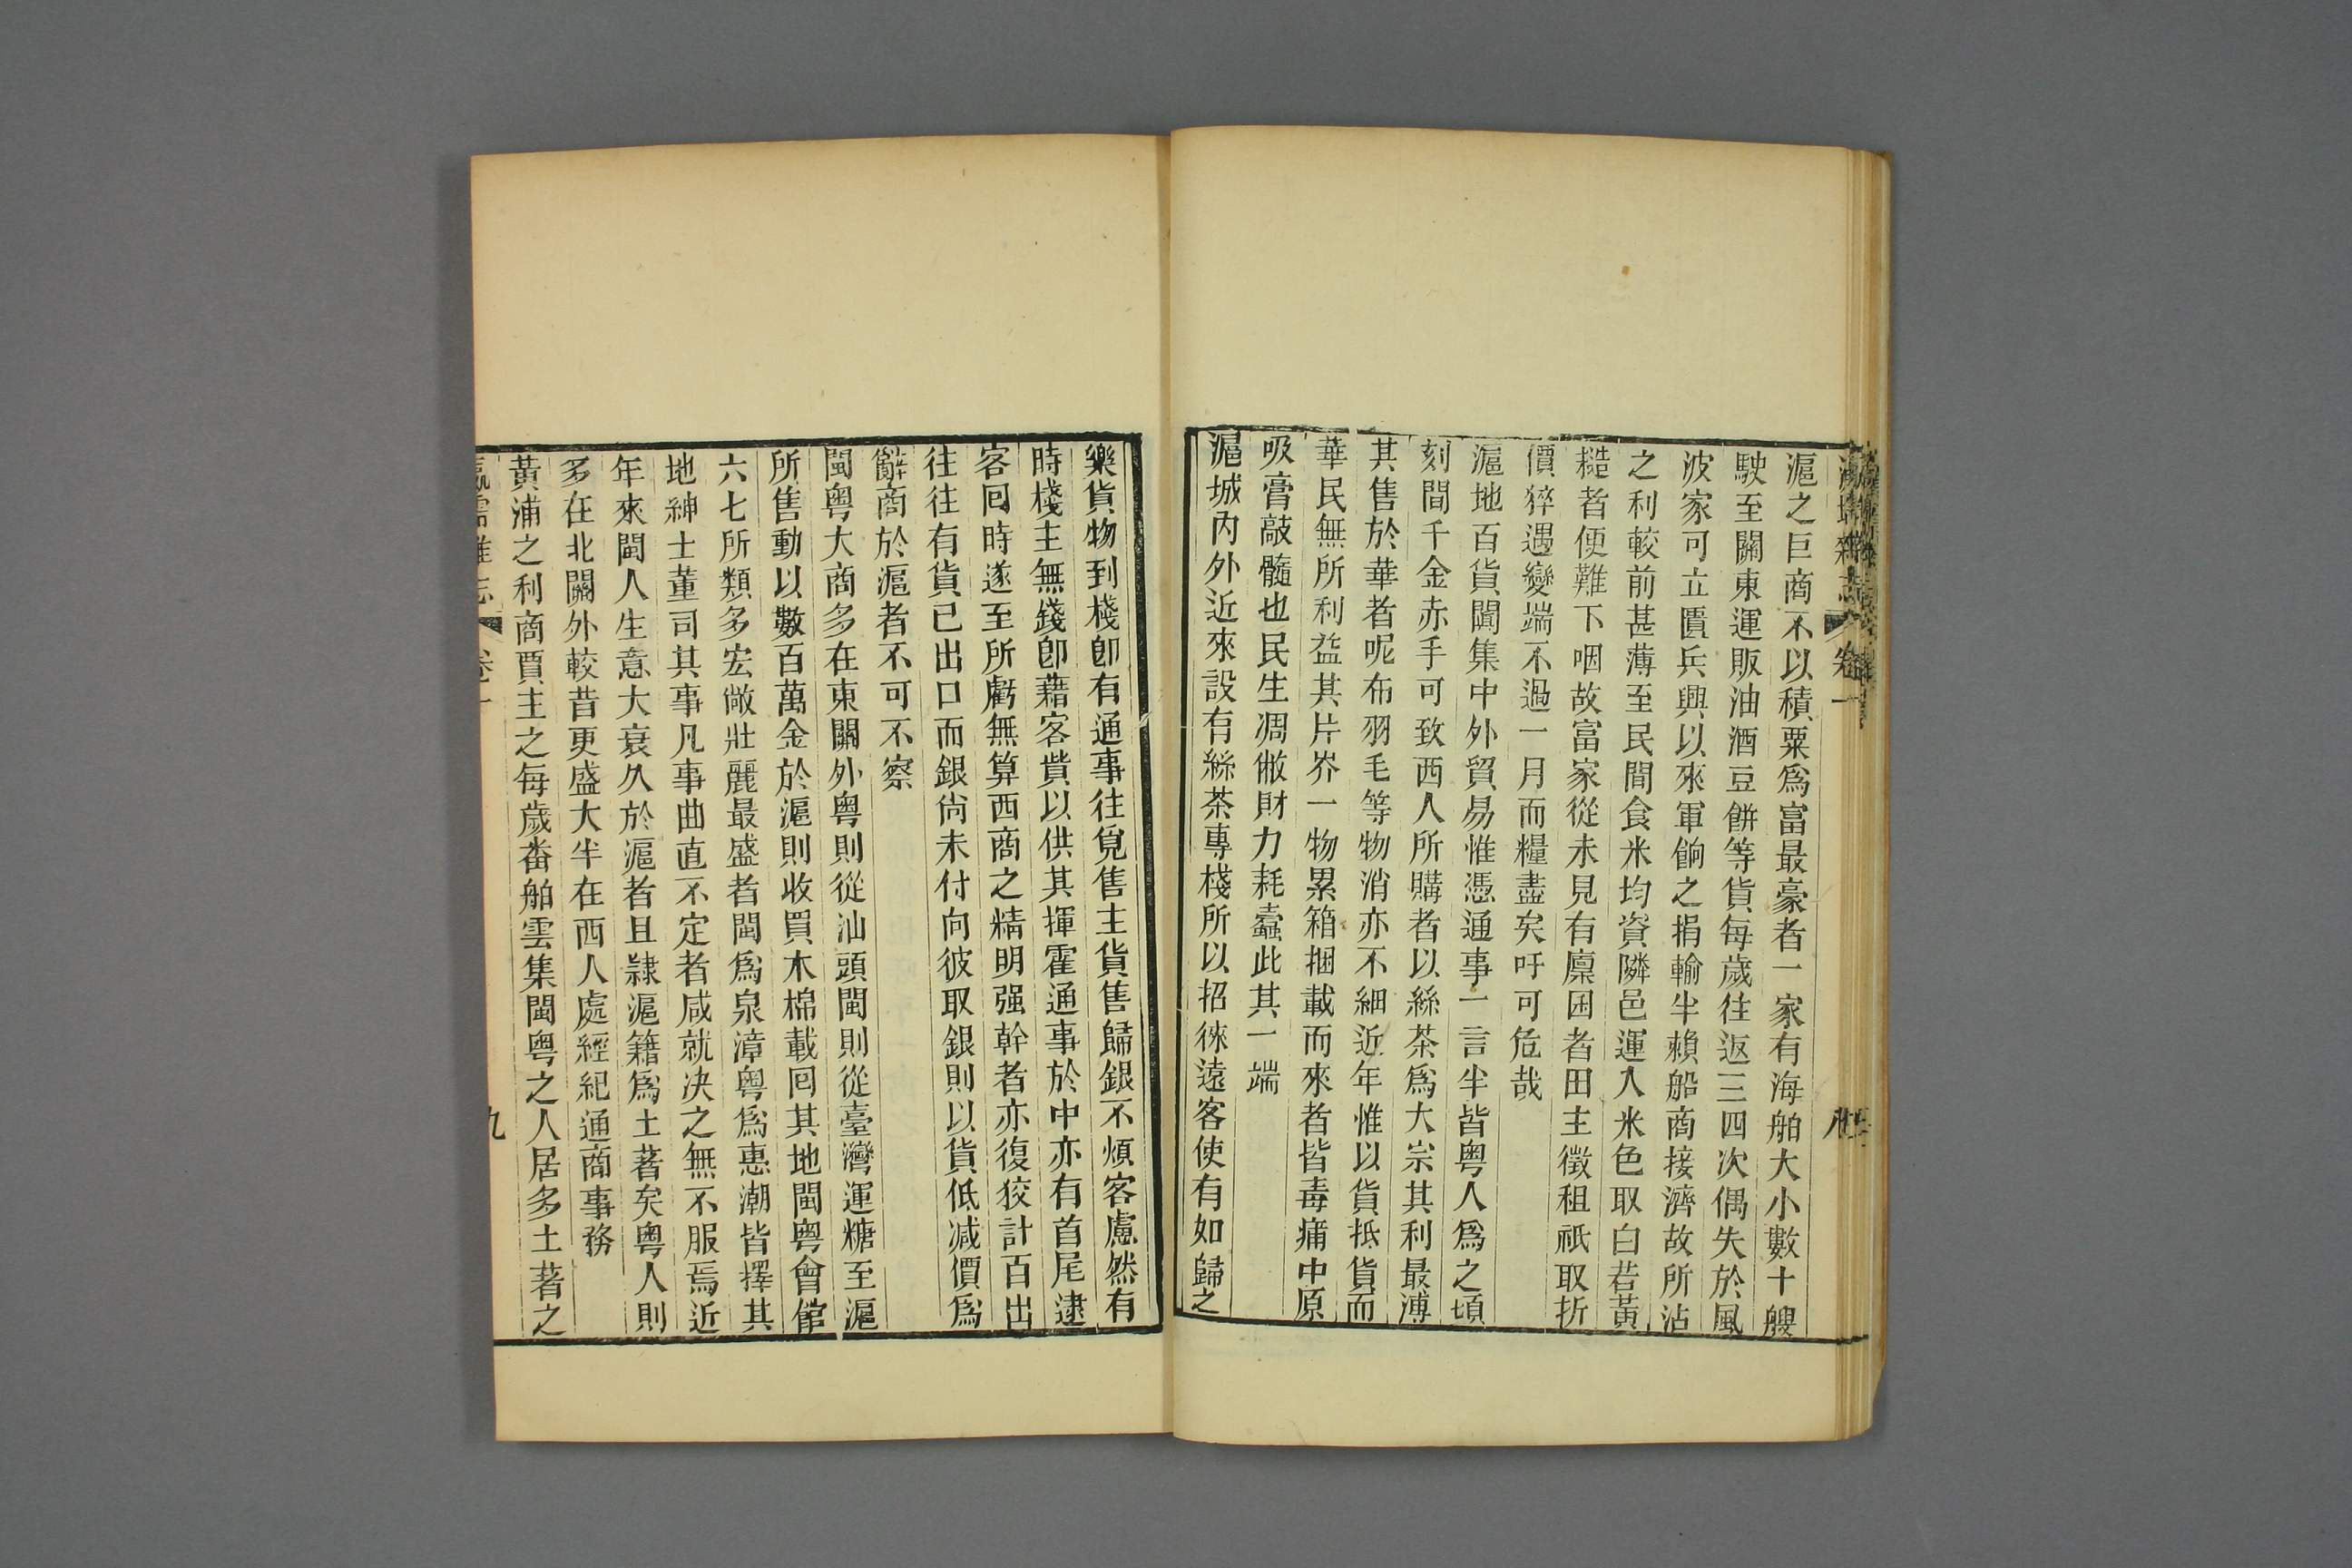 滬之巨商不以積粟爲富最豪者一家有海舶大小數十艘
駛至關東運販油酒豆餅等貨每歲往返三四次偶失於風
波家可立匱兵興以來軍餉之捐輸半賴船商接濟故所沾
之利較前甚薄至民間食米均資隣邑運入米色取白若黃
糙者便難下咽故富家從未見有廩囷者田主徵租祇取折
價猝遇變端不過一月而糧盡矣吁可危哉
滬地百貨闐集中外貿易惟憑通事一言半皆粤人爲之頃
刻間千金赤手可致西人所購者以絲茶爲大宗其利最溥
其售於華者呢布羽毛等物消亦不細近年惟以貨抵貨而
華民無所利益其片芥一物累箱捆載而來者皆毒痡中原
吸膏敲髓也民生凋敝財力耗蠹此其一端
滬城內外近來設有絲茶專棧所以招徠遠客使有如歸之
樂貨物到棧卽有通事往覓售主貨售歸銀不煩客慮然有
時棧主無錢卽藉客貲以供其揮霍通事於中亦有首尾逮
客囘時遂至所虧無算西商之精明强幹者亦復狡計百出
往往有貨已出口而銀尙未付向彼取銀則以貨低减價爲
辭商於滬者不可不察
閩粤大商多在東關外粤則從汕頭閩則從臺灣運糖至滬
所售動以數百萬金於滬則收買木棉載囘其地閩粤會館
六七所類多宏敞壯麗最盛者閩爲泉漳粤爲惠潮皆擇其
地紳士董司其事凡事曲直不定者咸就决之無不服焉近
年來閩人生意大衰久於滬者且隸滬籍爲土著矣粤人則
多在北關外較昔更盛大半在西人處經紀通商事務
黃浦之利商賈主之每歲番舶雲集閩粤之人居多土著之
九